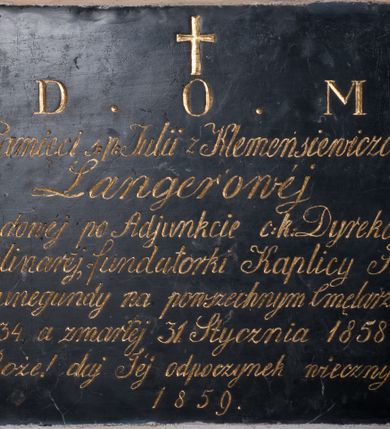 D. O. M
Pamięci ś.p. Julii z Klemensiewiczó
Langerowéj
dowej po Adjunkcie c.k. Dyrekc
linaréj, fundatorki Kaplicy
unegundy na powszechnym Cmętar
34 a zmarłéj 31 Stycznia 1858
Boże! daj Jéj odpoczynek wieczny
1859.